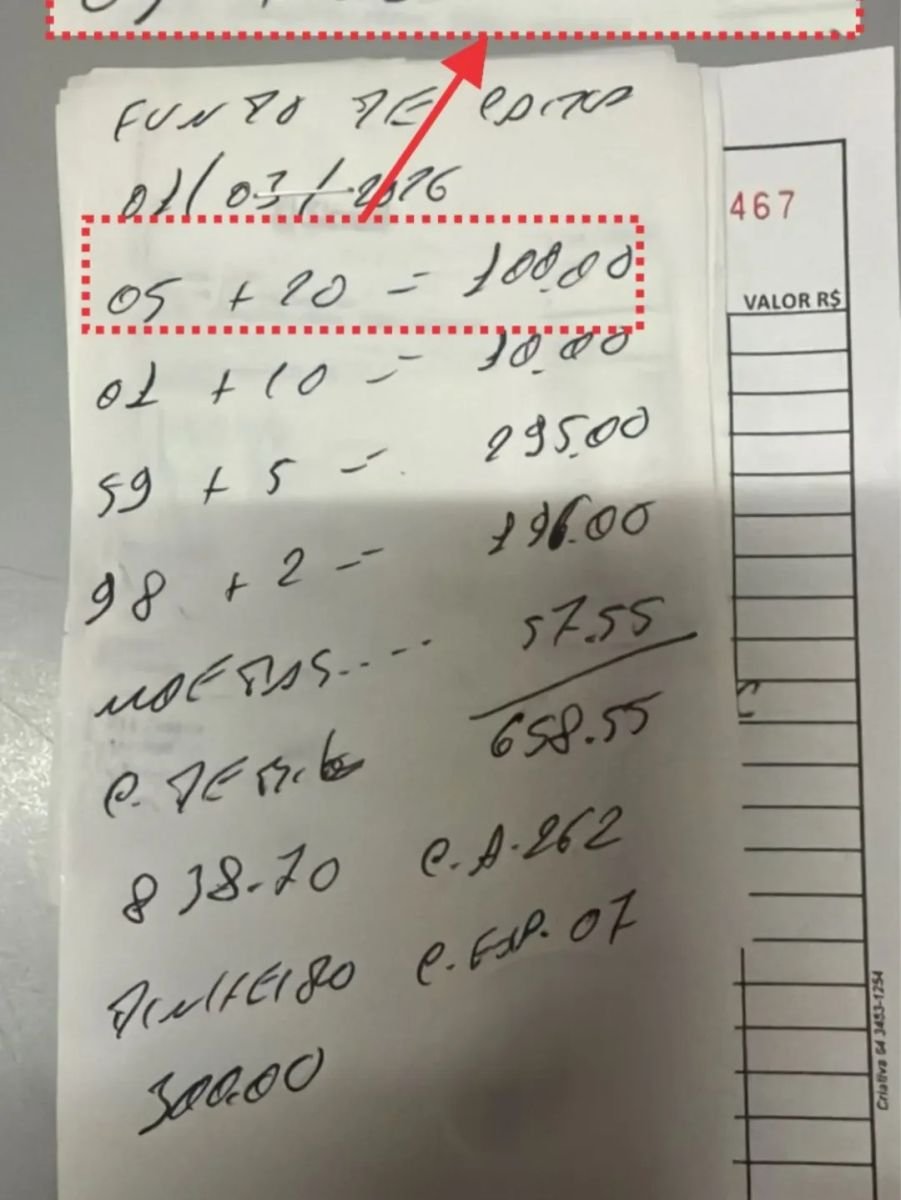 FUNDO DE CAIXA
01/03/2026
05 + 20 = 100.00
01 + 10 = 10.00
59 + 5 = 295.00
98 + 2 = 196.00
MOEDAS.... 57.55
658.55
C. DEB.
838.70 C.A.262
DINHEIRO C.ESP. 07
300.00
467
VALOR R$
Criativa 64 3453-1254